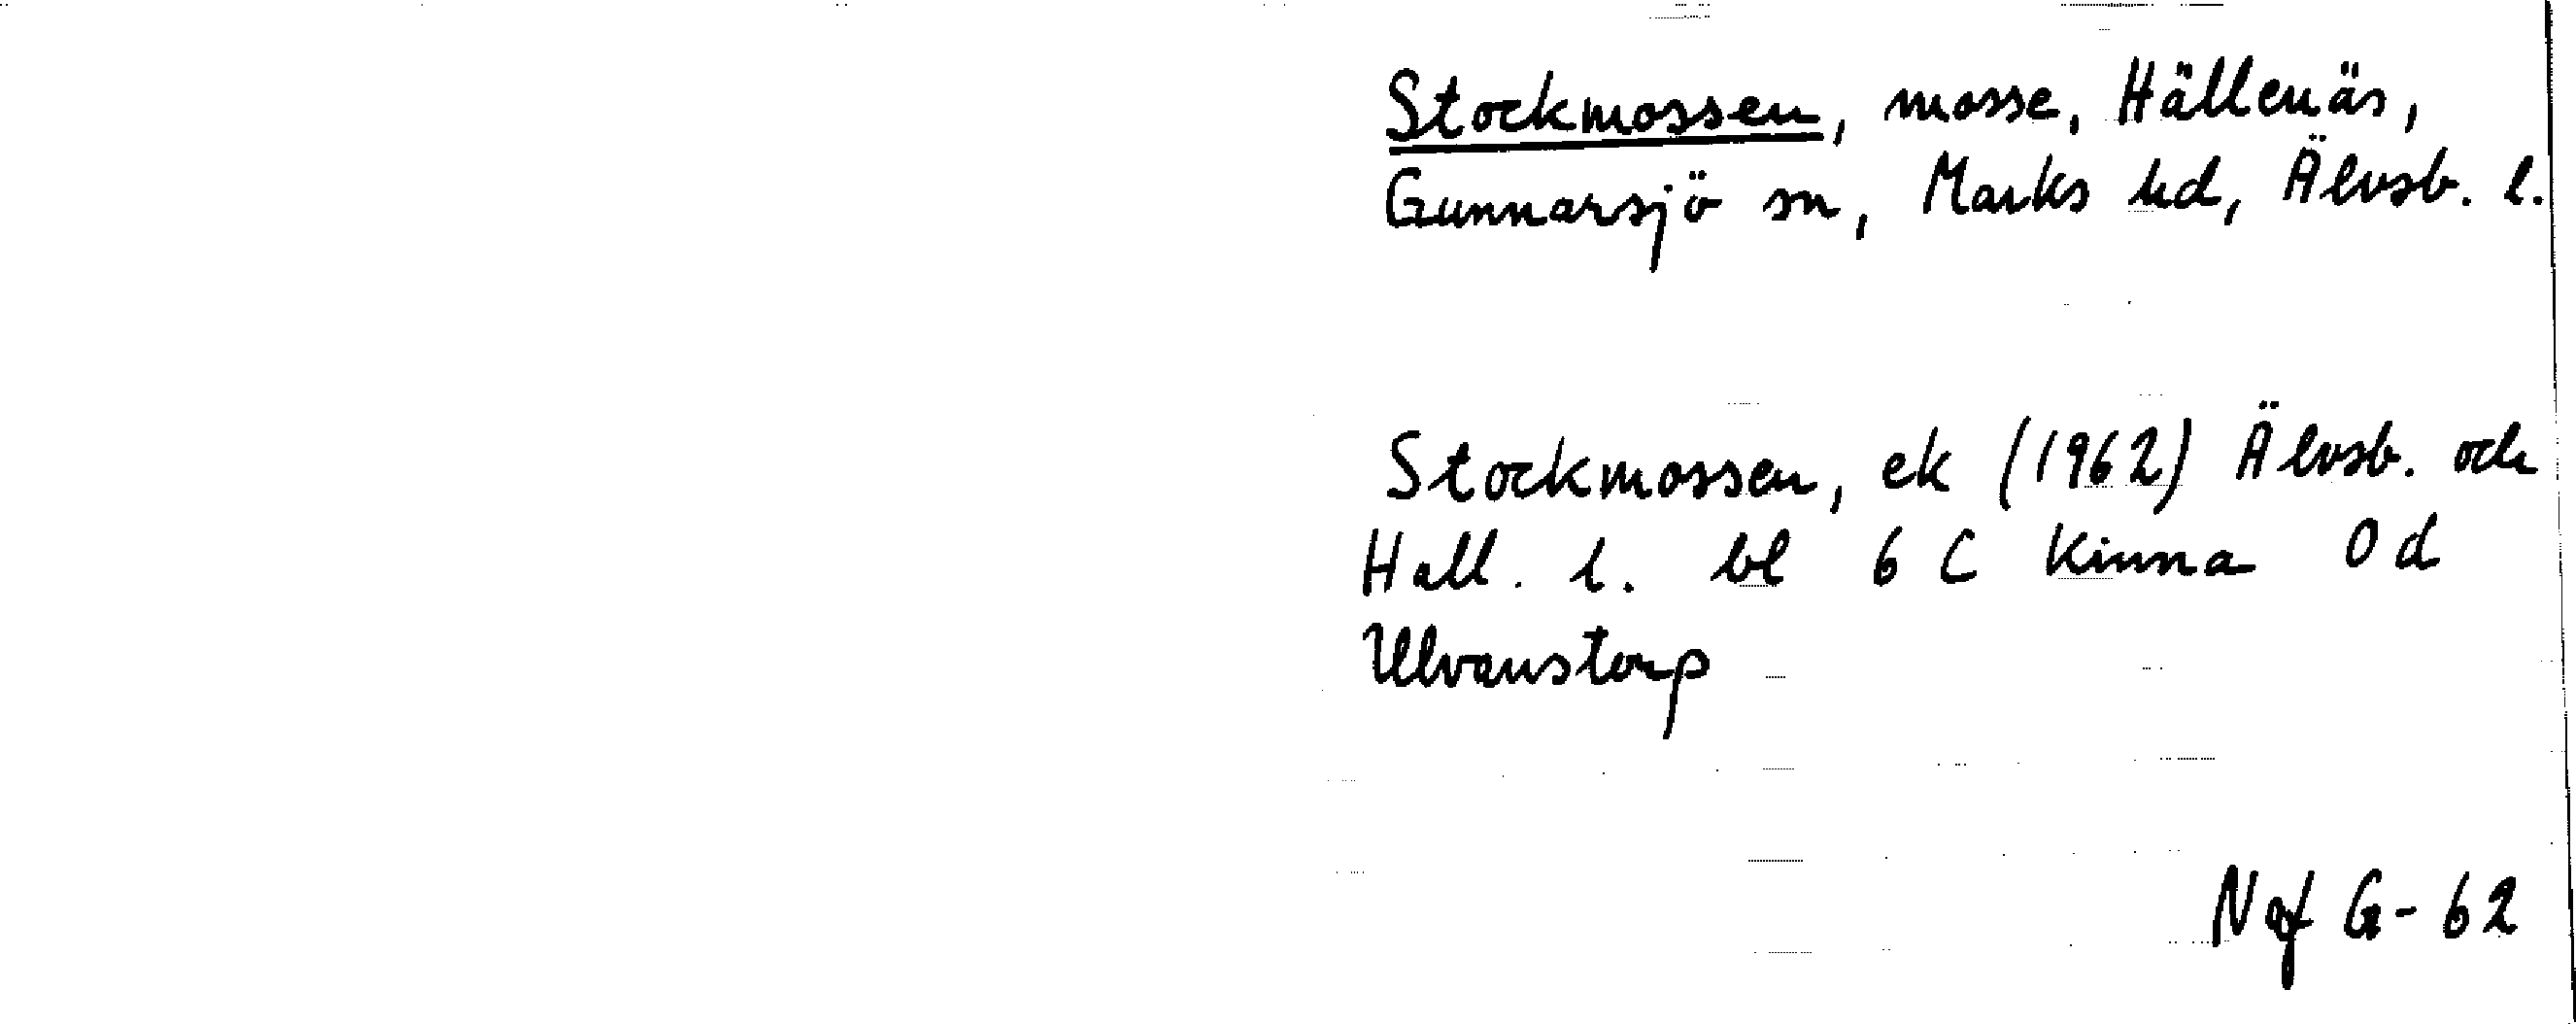 Stockmossen, mosse, Hällenäs,
Gunnarsjö sn, Marks hd, Älvsb. l.
Stockmossen, ek (1962) Älvsb. och
Hall. l. bl 6 C Kinna 0 d
Ulvanstorp
Naf G-62